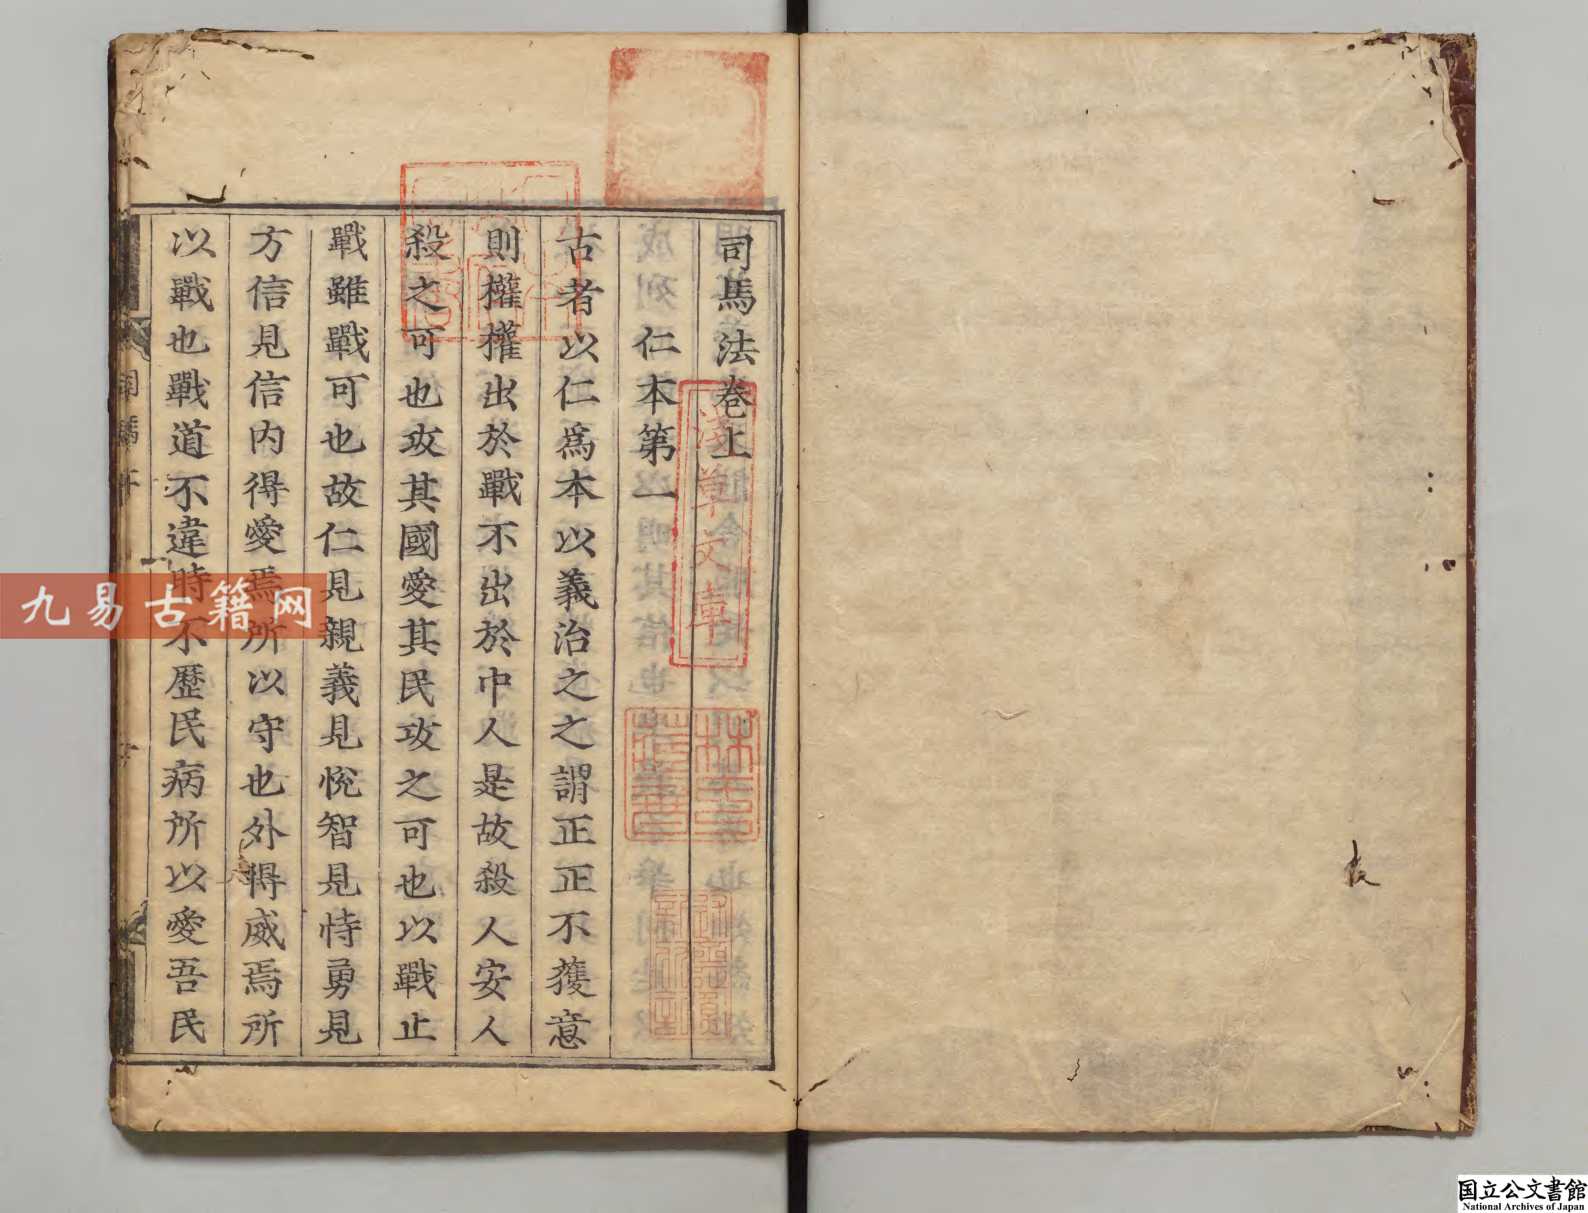 司馬法卷上
仁本第一
古者以仁爲本以義治之之謂正正不獲意
則權權出於戰不出於中人是故殺人安人
殺之可也攻其國愛其民攻之可也以戰止
戰雖戰可也故仁見親義見悅智見恃勇見
方信見信内得愛焉所以守也外得威焉所
以戰也戰道不違時不歷民病所以愛吾民
淺草文庫
九易古籍网
国立公文書館
National Archives of Japan